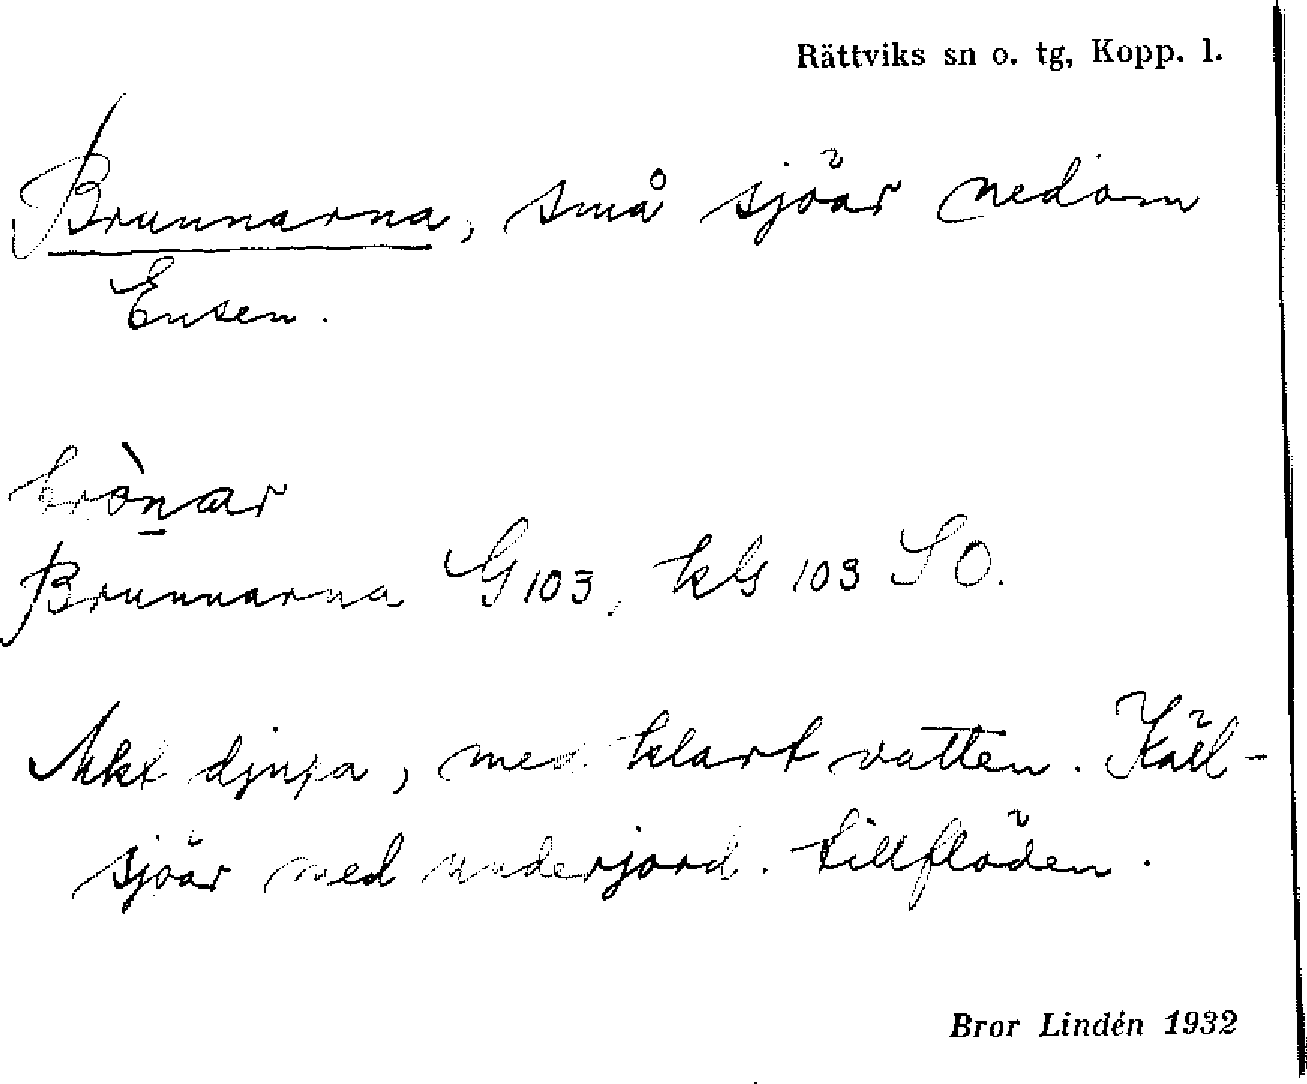 Rättviks sn o. tg, Kopp. l.
Brunnarna, små sjöar nedom
Ensen.
brò̠nar
Brunnarna G 103, kG 103 SO.
Mkt djupa, med klart vatten. Käll-
sjöar med underjord. tillflöden.
Bror Lindén 1932